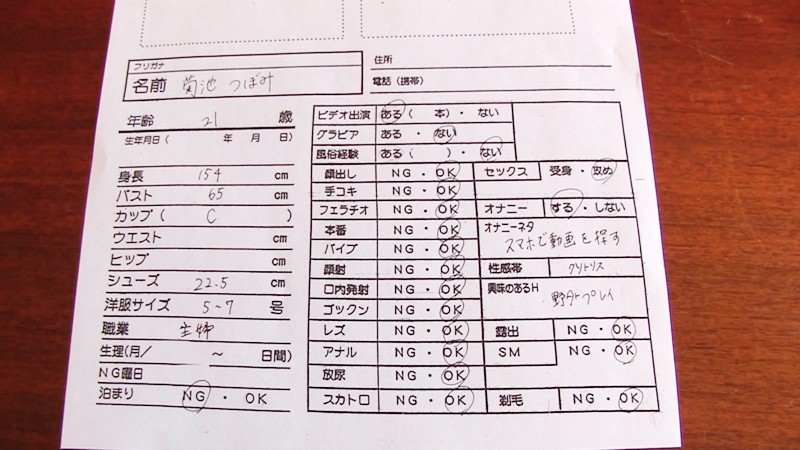 フリガナ
名前 菊池 つぼみ
住所
電話(携帯)
年齢 21 歳
生年月日( 年 月 日)
身長 154 cm
バスト 65 cm
カップ( C )
ウエスト cm
ヒップ cm
シューズ 22.5 cm
洋服サイズ 5~7 号
職業 主婦
生理(月/ ~ 日間)
NG曜日
泊まり NG・OK
ビデオ出演 ある( 本)・ない
グラビア ある・ない
風俗経験 ある( )・ない
顔出し NG・OK
手コキ NG・OK
フェラチオ NG・OK
本番 NG・OK
バイブ NG・OK
顔射 NG・OK
口内発射 NG・OK
ゴックン NG・OK
レズ NG・OK
アナル NG・OK
放尿 NG・OK
スカトロ NG・OK
セックス 受身・攻め
オナニー する・しない
オナニーネタ
スマホで動画を探す
性感帯 クリトリス
興味のあるH
野外プレイ
露出 NG・OK
SM NG・OK
剃毛 NG・OK